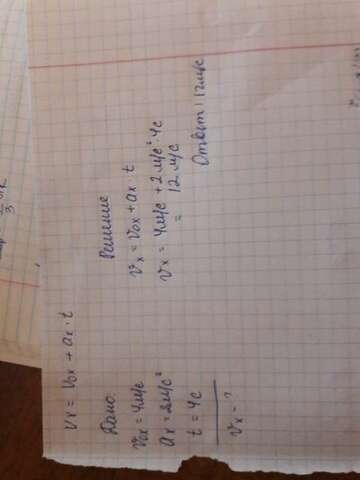 Vx = V₀x + ax · t
Дано:
V₀x = 4м/с
ax = 2м/с²
t = 4с
Vx - ?
Решение
Vx = V₀x + ax · t
Vx = 4м/с + 2м/с² · 4с
= 12 м/с
Ответ: 12м/с